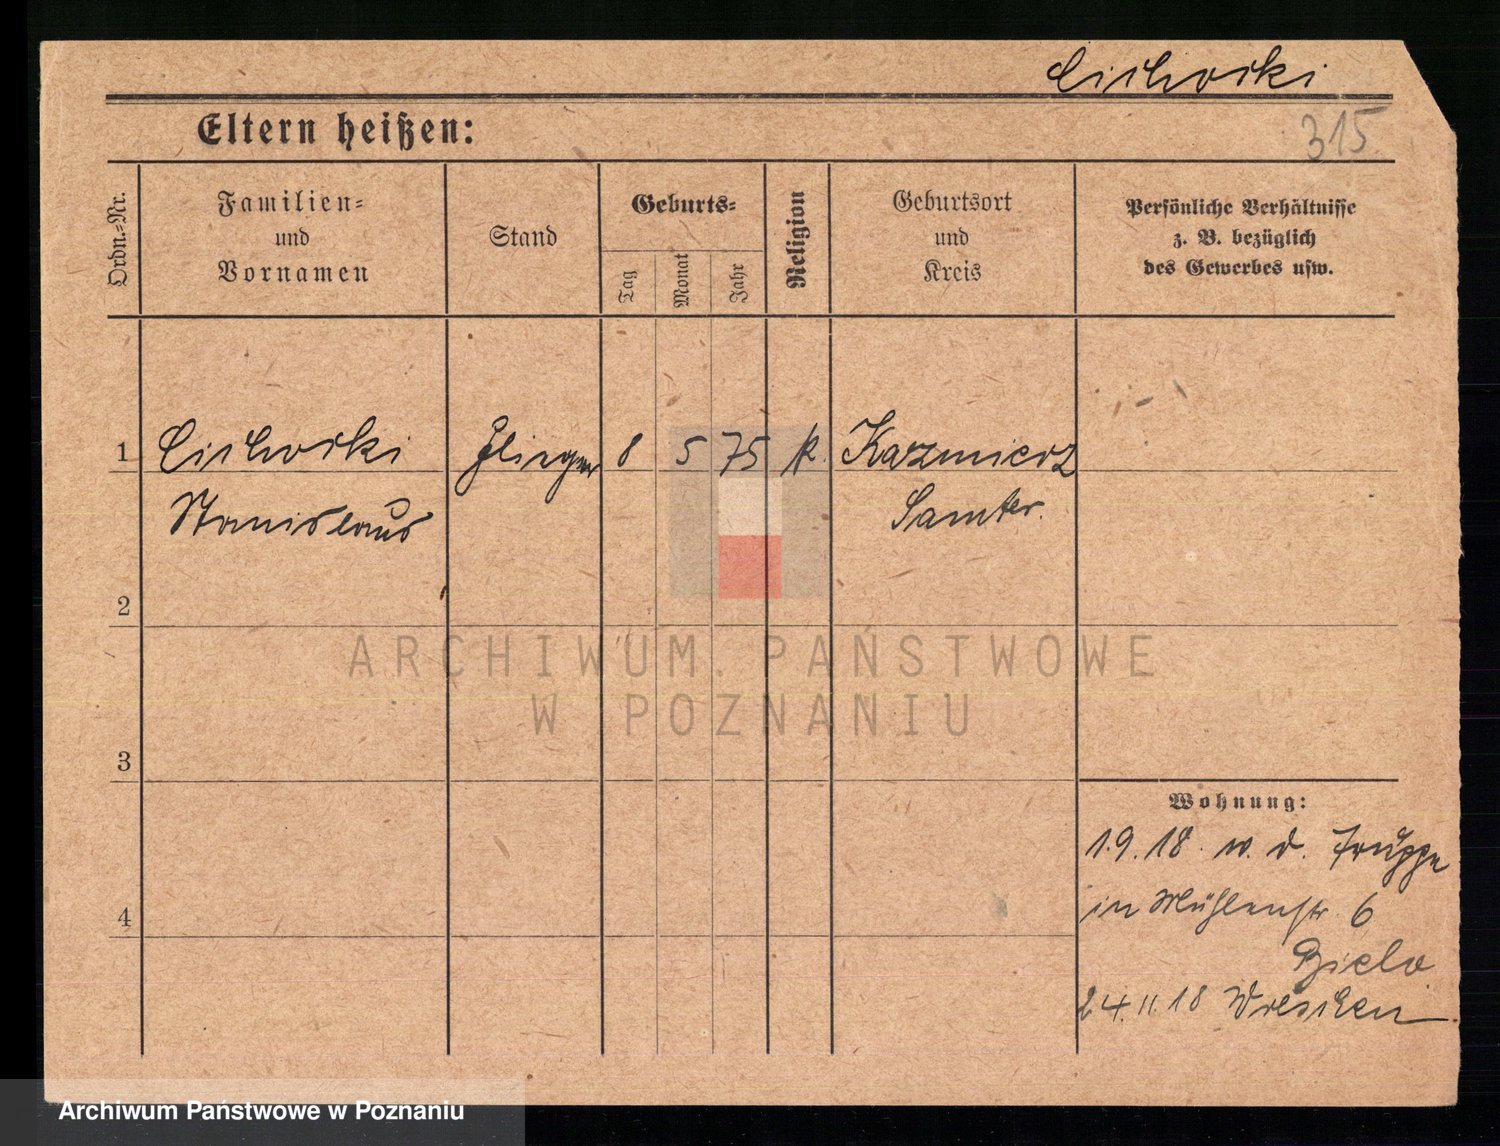 Cichocki
315
Eltern heißen:
Ordn.-Nr.
Familien-
und
Vornamen
Stand
Geburts-
Tag
Monat
Jahr
Religion
Geburtsort
und
Kreis
Persönliche Verhältnisse
z. B. bezüglich
des Gewerbes usw.
1
Cichocki
8
5
75
k.
Kazmierz
Stanislaus
Samter.
2
ARCHIWUM PAŃSTWOWE
W POZNANIU
3
Wohnung:
1.9.18. w. d. Truppe
in Mühlenstr. 6
4
24.11.18 Wreschen
Archiwum Państwowe w Poznaniu